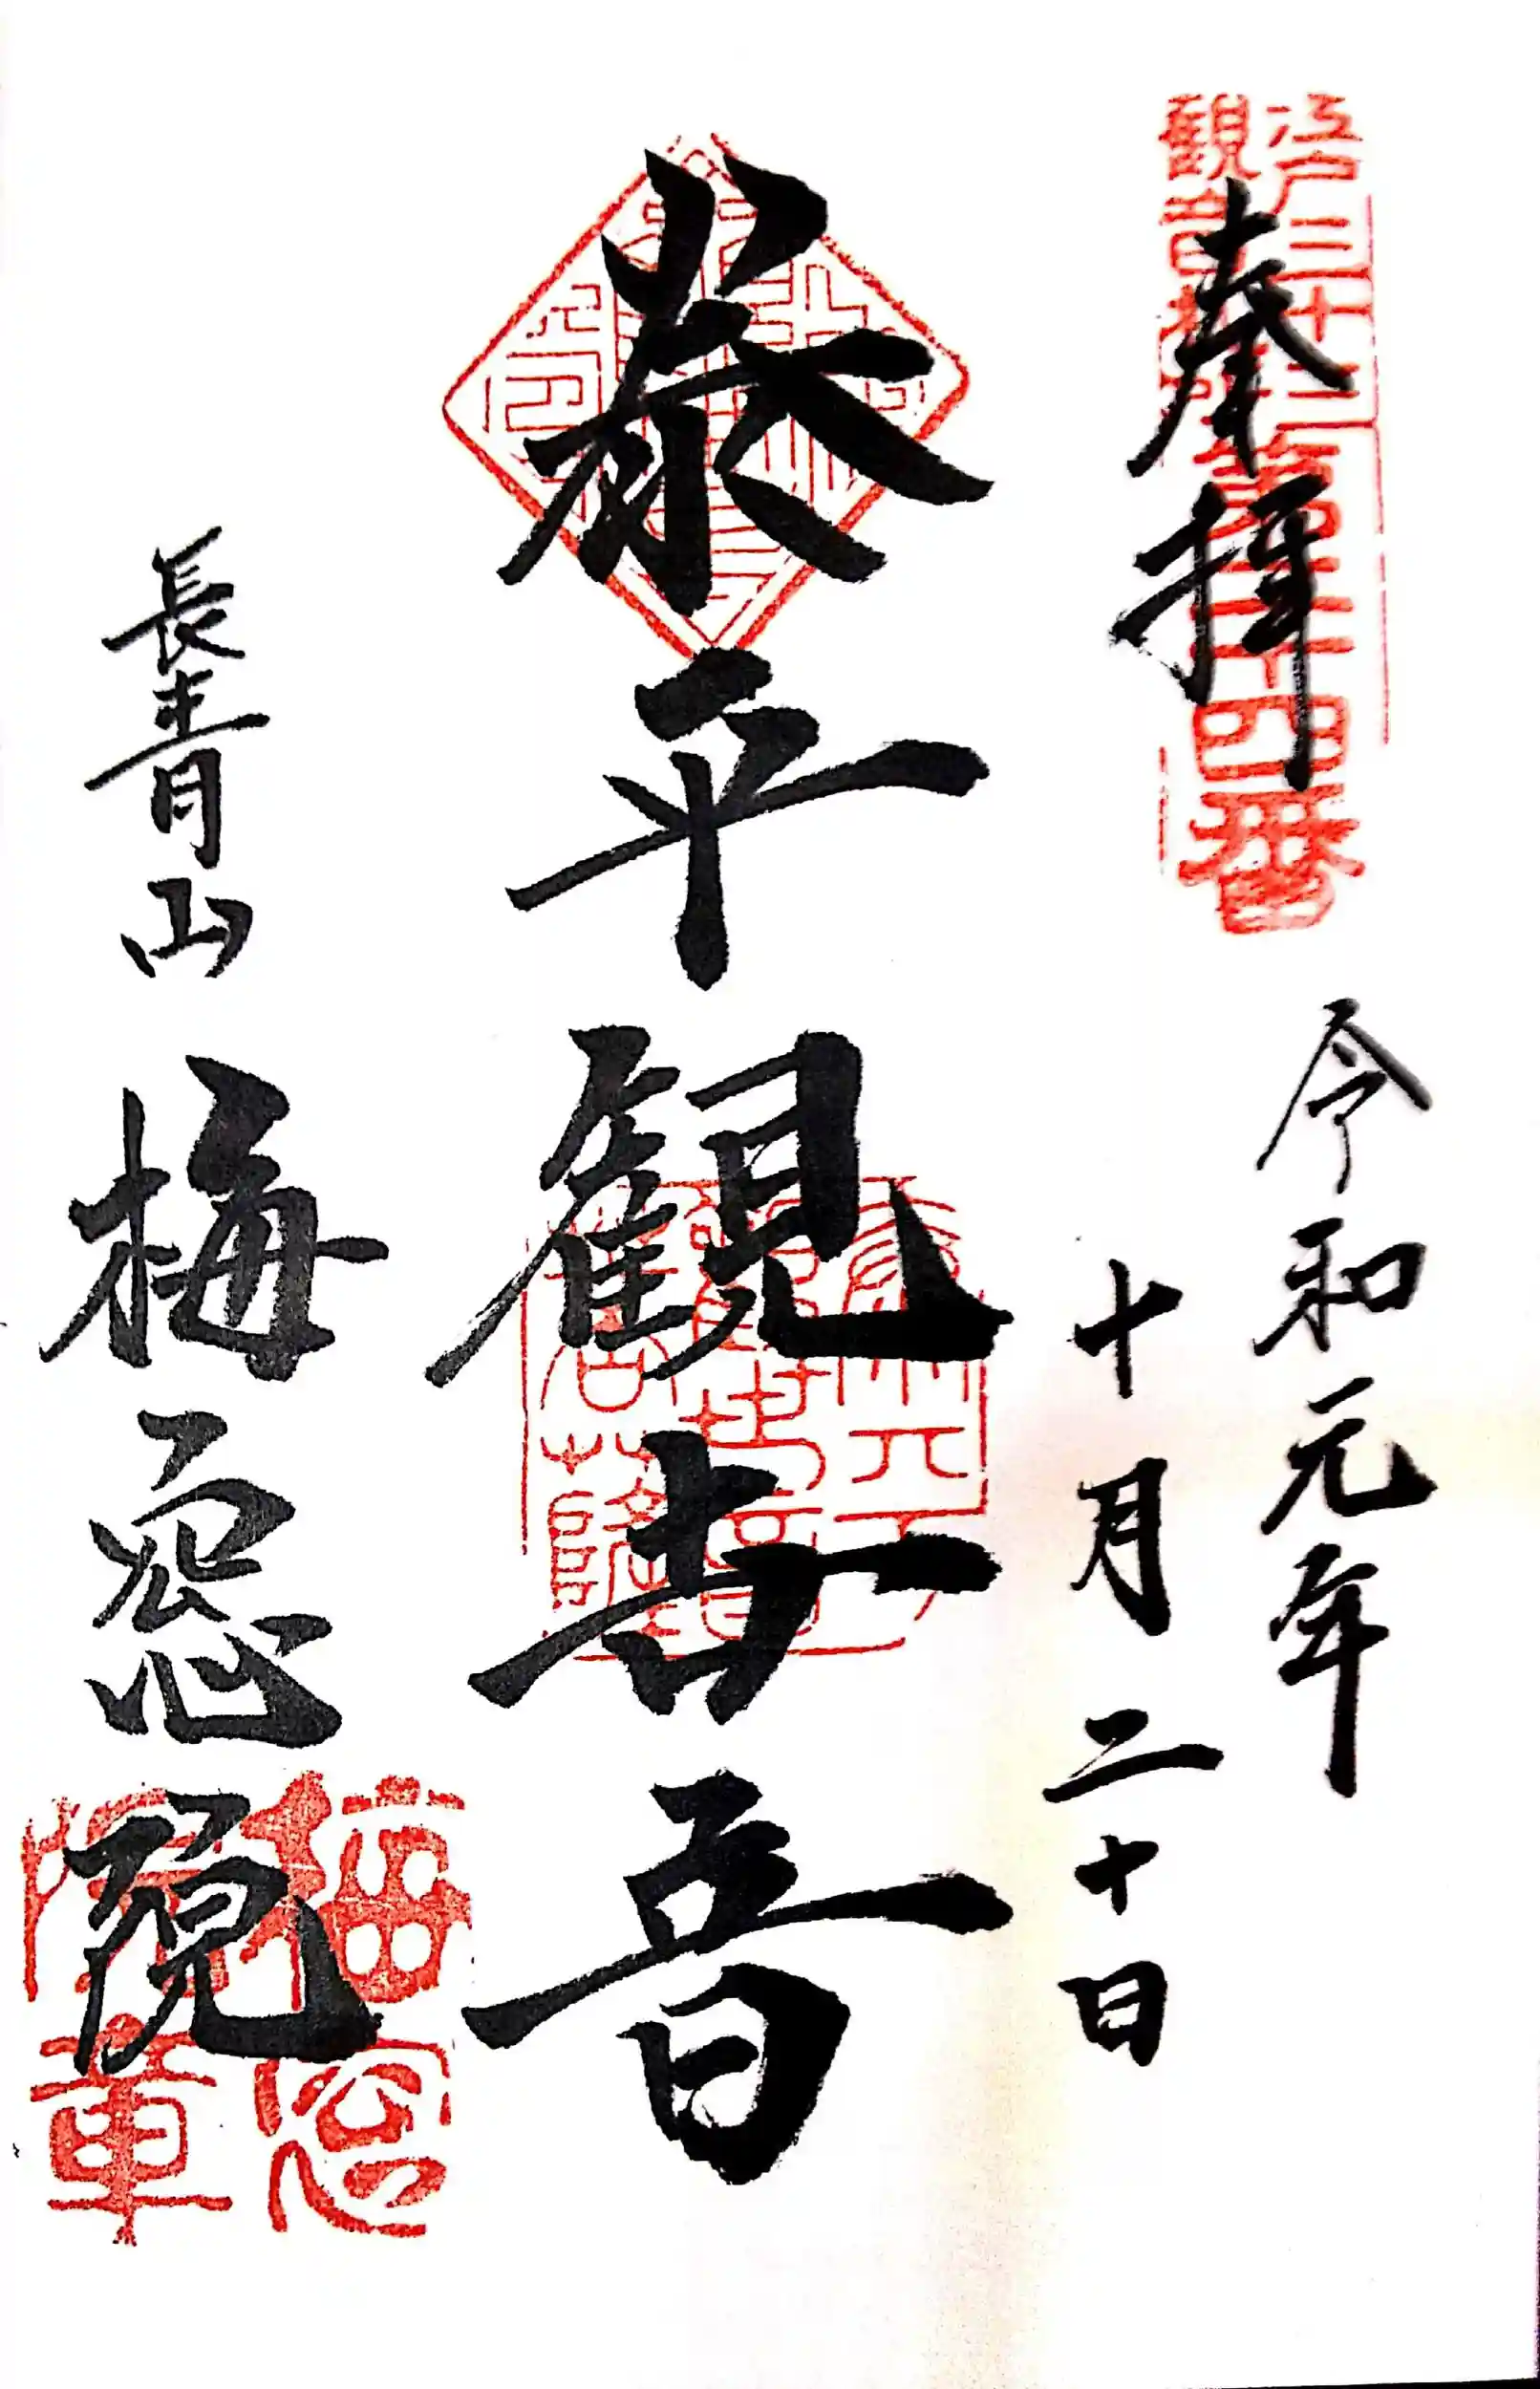 江戸三十三
観音札所
第二十四番
奉拝
令和元年
十月二十日
泰平観世音
長青山
梅窓院
梅窓
院章